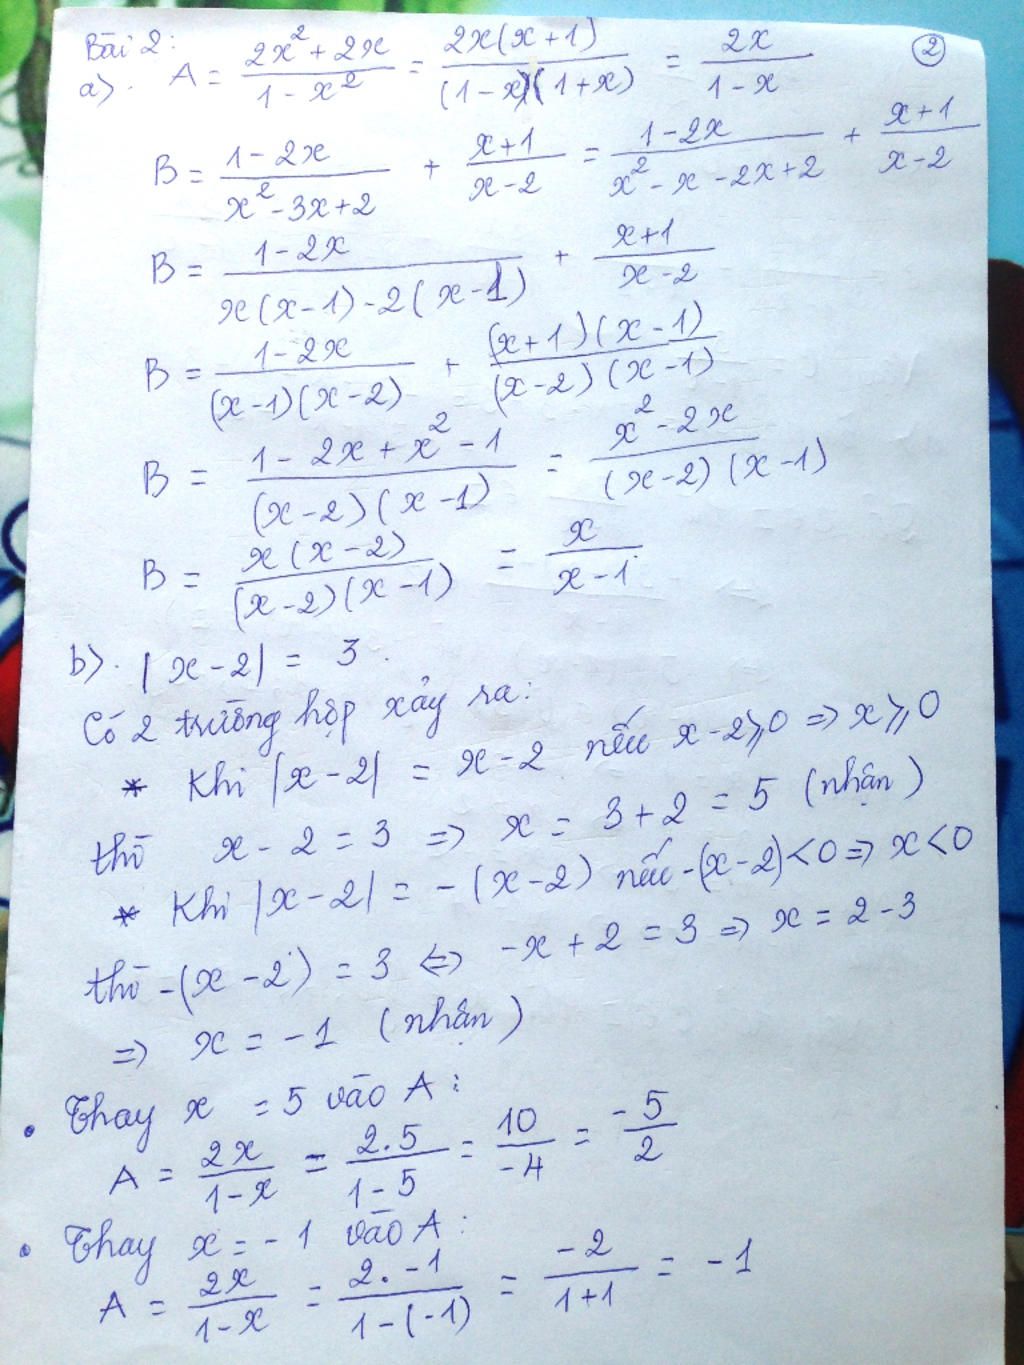 Bài 2: ②
a). A = (2x² + 2x)/(1 - x²) = 2x(x+1)/((1-x)(1+x)) = 2x/(1-x)
B = (1-2x)/(x²-3x+2) + (x+1)/(x-2) = (1-2x)/(x²-x-2x+2) + (x+1)/(x-2)
B = (1-2x)/(x(x-1)-2(x-1)) + (x+1)/(x-2)
B = (1-2x)/((x-1)(x-2)) + (x+1)(x-1)/((x-2)(x-1))
B = (1-2x+x²-1)/((x-2)(x-1)) = (x²-2x)/((x-2)(x-1))
B = x(x-2)/((x-2)(x-1)) = x/(x-1)
b). |x-2| = 3.
Có 2 trường hợp xảy ra:
* Khi |x-2| = x-2 nếu x-2⩾0 => x⩾0
thì x-2 = 3 => x = 3+2 = 5 (nhận)
* Khi |x-2| = -(x-2) nếu -(x-2)<0 => x<0
thì -(x-2) = 3 <=> -x+2 = 3 => x = 2-3
=> x = -1 (nhận)
• Thay x = 5 vào A:
A = 2x/(1-x) = 2.5/(1-5) = 10/-4 = -5/2
• Thay x = -1 vào A:
A = 2x/(1-x) = 2.-1/(1-(-1)) = -2/(1+1) = -1